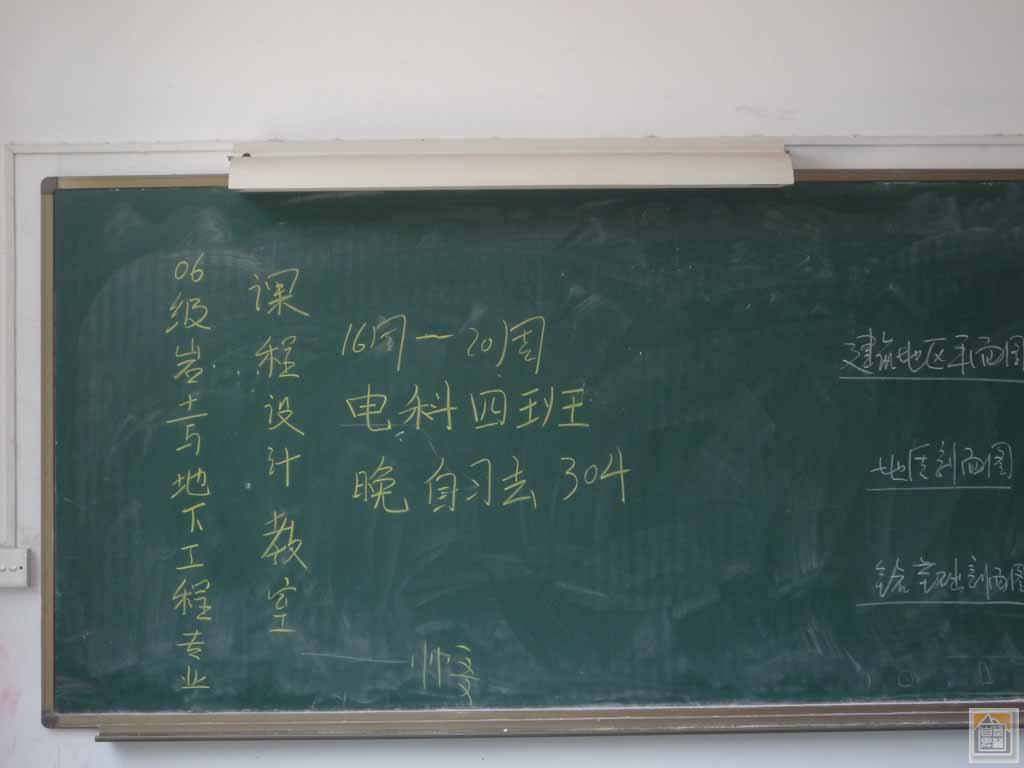 06级岩土与地下工程专业
课程设计教室
16周—20周
电科四班
晚自习去304
建筑地区平面图
地质剖面图